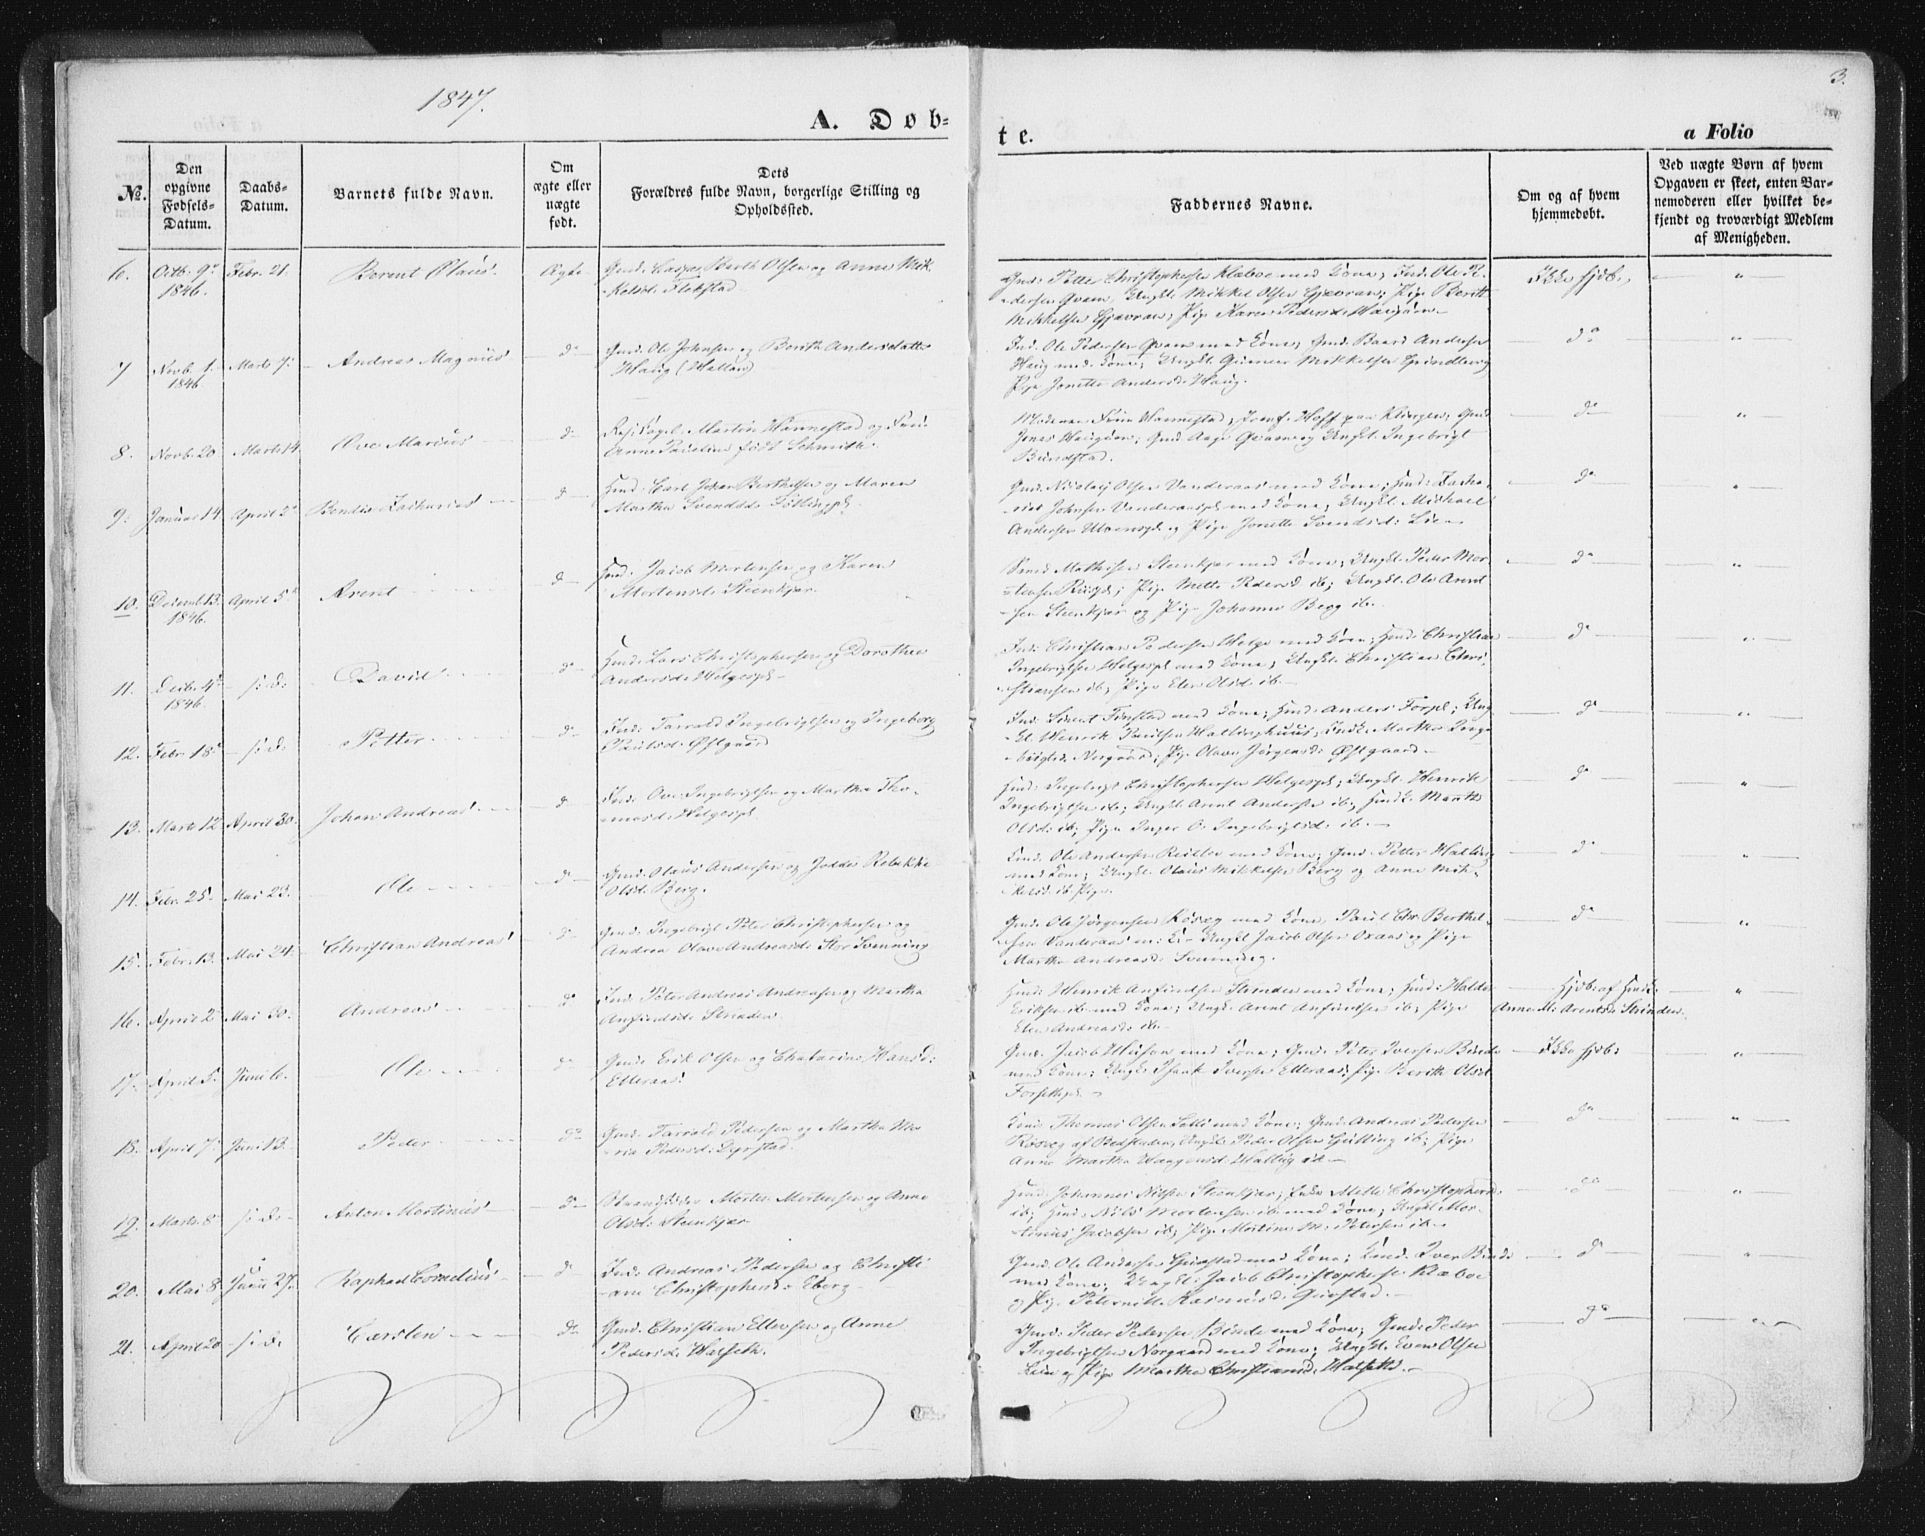 1847.
3.
A. Døb-
te.
a Folio
No.
Den opgivne Fødsels-Datum.
Daabs-Datum.
Barnets fulde Navn.
Om ægte eller uægte født.
Dets Forældres fulde Navn, borgerlige Stilling og Opholdssted.
Faddernes Navne.
Om og af hvem hjemmedøbt.
Ved uægte Børn af hvem Opgaven er skeet, enten Barnemoderen eller hvilket bekjendt og troværdigt Medlem af Menigheden.
6. Octb. 9de 1846. Febr. 21. Berent Olaus. Ægte
Anne Mik-
kelsd. Flekstad
Gmd. Petter Christophersen Klæboe med Kone; Ind. Ole P-
edersen Qvam, Ungk. Mikkel Olsen Gjævran; Pige Berit
Mikkelsen Gjævran; Pige Karen Pedersd. Haugan
Ikke hjdb.
7 Novb. 1. 1846. Marts 7. Andreas Magnus do
Gmd. Ole Johnsen og Berith Andersdatter
Haug (Hallan)
Ind. Ole Pedersen Qvam med Kone; Gmd. Baard Andersen
Haug med Kone; Ungk. Gunner Mikkelsen
Pige Jonette Andersd. Haug.
do
8. Novb. 20 Marts 14 Ove Marius d
Martin Wannestad og Frue
Anne Pauline født Schmith.
Moderen Frue Wannestad; Jomf. Hoff paa Klingen; Gmd
Jonas Haugan; Gmd Aage Qvam og Ungk. Ingebrigt
Bundstad.
do
9. Januar 14 April 2d Bendix Zacharias d
Hmd. Carl Johan Berthelsen og Maren
Martha Svendsd.
Gmd. Nicolaj Olsen Vanderaas med Kone; Hmd. Zacha-
rias Johnsen med Kone; Ungk. Michael
Andersen og Pige Jonette Svendsd. Lie
do
10. Decemb. 13. 1846. April 5te Arent d
Hmd. Jacob Mortensen og Karen
Mortensd. Steenkjær.
Mathisen Steenkjær med Kone; Ungk. Peder Mor-
tensen Pige Mette Pedersd ib; Ungk. Ole Arent-
sen Steenkjær og Pige Johanne Begg ib.
do
11. Decbr. 4de 1846. s: D: David do
Hmd. Lars Christophersen og Dorothea
Andersd. Helgespl.
Ind. Christian Pedersen Helge med Kone; Hmd. Christian
Ingebrigtsen Helgespl. med Kone; Ungk. Christian Chri-
stiansen ib; Pige Elen Olsd. ib.
do
12. Febr. 18de s: D: Petter do
Ind. Tarrald Ingebrigtsen og Ingeborg
Østgaard
Finstad med Kone; Hmd. Anders Forpl; Ung-
k. Henrik Hallinghuus; Martha Inge-
brigtsd. Norgaard; Pige Olave Jørgensd. Østgaard
do
13. Marts 12 April 30. Johan Andreas d
Ind. Ove Ingebrigtsen og Martha Tho-
masd. Helgespl.
Hmd. Ingebrigt Christophersen Helgespl; Ungk. Henrik
Ingebrigtsen ib; Ungk. Arent Andersen ib; Marith
Olsd. ib; Pige Inger O. Ingebrigtsd. ib.
do
14. Febr. 25. Mai 23. Ole do
Gmd. Olaus Andersen og Rebekka
Olsd. Berg.
Ole Andersen med Kone; Gmd. Petter Halling
med Kone; Ungk. Olaus Mikkelsen Berg og Anne Mik-
kelsd. ib Pige.
do
15. Febr. 13. Mai 24. Christian Andreas do
Gmd. Ingebrigt Peter Christophersen og
Andrea Olave Andreasd. Stor Svenning
Gmd. Ole Jørgensen Røseg med Kone, Paul Chr. Berthel-
sen Vanderaas m: K. Ungk Jacob Olsen Oxaas og Pige
Martha Andreasd. Svenning.
do
16. April 2d Mai 30. Andreas do
Ind. Peter Andreas Andreasen og Martha
Anfindsd. Strinden.
Hmd. Henrik Anfindsen Strinden med Kone; Hmd. Halden
Eriksen ib med Kone; Ungk. Arent Anfindsen ib; Pige
Elen Andreasd. ib.
Hjdb. af Hmdk.
Anne M. Arentsd. Strinden.
17. April 5. Juni 6. Ole do
Gmd. Erik Olsen og Chatarina Hansd.
Elleraas.
Gmd. Jacob med Kone; Gmd. Peter Iversen Binde
med Kone; Ungk. Isaak Iversen Elleraas; Pige Berith Olsd
Forsethpl.
Ikke hjdb.
18. April 7. Juni 13. Peder do
Gmd. Tarrald Pedersen og Martha Ma-
ria Pedersd. Dyrstad.
Thomas Olsen med Kone; Gmd. Andreas Pedersen
Røseg af Beitstaden, Ungk. Peder Olsen ib; Pige
Anne Martha
do
19. Marts 8 s: D: Anton Martinus do
Strandsidder Morten Mortensen og Anne
Olsd. Steenkjær
Hmd. Johannes Nilsen Steenkjær; Enke Mette Christophersd.
ib; Hmd. Nils Mortensen ib med Kone; Ungk. Mor-
tinus Jacobsen ib; Pige Martine M. Petersen ib.
do
20. Mai 8 Juni 27. Raphael Cornelius do
Ind. Andreas Pedersen og Christi-
ane Christophersd. Eberg
Gmd. Ole Andersen med Kone; Iver Binde
med Kone; Ungk. Jacob Christophersen Klæboe
og Pige Peternille Rasmusd.
do
21. April 20 s: D: Carsten do
Gmd. Christian Ellevsen og Anne
Pedersd. Halseth.
Gmd. Peder Pedersen Binde med Kone; Gmd. Peder
Ingebrigtsen Norgaard med Kone; Ungk. Even Olsen
og Pige Martha Christiansd. Halseth.
do